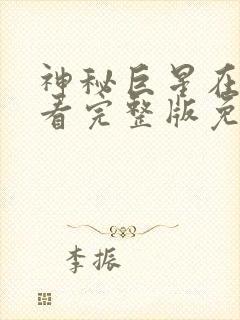 神秘巨星在
看完整版免
李振